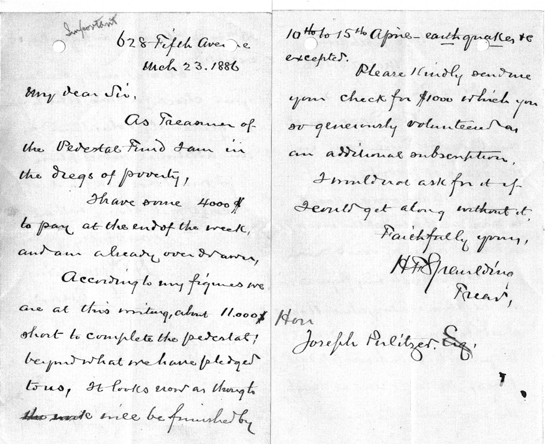 Important
628 Fifth Avenue
Mch 23. 1886
My dear Sir.
As Treasurer of
the Pedestal Fund I am in
the dregs of poverty,
I have some 4000 $
to pay at the end of the week,
and am already overdrawn,
According to my figures we
are at this writing, about 11.000 $
short to complete the pedestal;
beyond what we have pledged
to us, It looks now as though
the work will be finished by
10th to 15th April - earthquakes &c
excepted.
Please Kindly send me
your check for $1000 which you
so generously volunteered as
an additional subscription,
I would not ask for it if
I could get along without it,
Faithfully yours,
H F Spaulding
Treas,
Hon
Joseph Pulitzer. Esq.